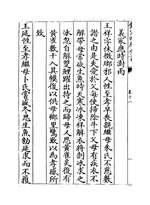 王祥字休徵瑯邪人性至孝早喪親繼母朱氏不慈數
譖之由是失愛於父每使掃除牛下父母有疾衣不
解帶母常欲生魚時天寒冰凍祥解衣將剖冰求之
冰忽自解雙鯉躍出持之而歸母又思黃雀炙復有
黃雀數十入其幙復以供母鄉里驚嘆以為孝感所
致
王延性至孝繼母卜氏嘗盛冬思生魚勑延求而不獲